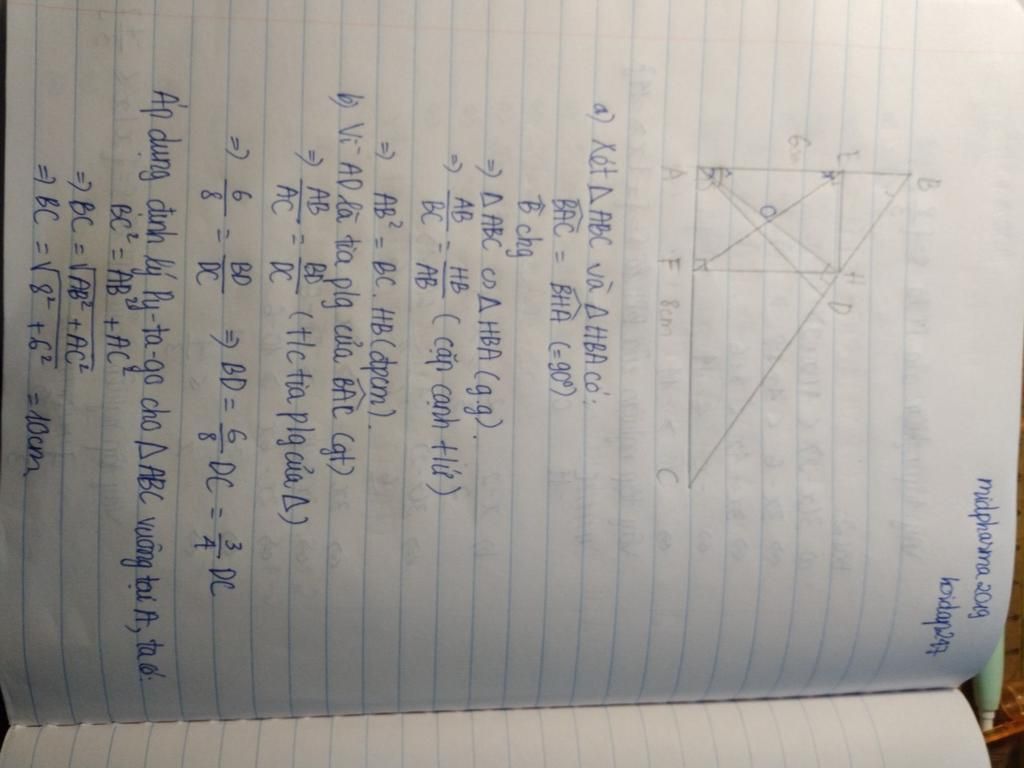 midpharma2019
hoidap247
B
E
H
D
6cm
O
A
F
8cm
C
a) Xét ΔABC và ΔHBA có:
BAC = BHA (=90°)
B chg
=> ΔABC co ΔHBA (g.g)
=> AB/BC = HB/AB (cặp cạnh t/ứ)
=> AB² = BC.HB (đpcm).
b) Vì AD là tia p/g của BAC (gt)
=> AB/AC = BD/DC (t/c tia p/g của Δ)
=> 6/8 = BD/DC => BD = 6/8 DC = 3/4 DC
Áp dụng định lý Py-ta-go cho ΔABC vuông tại A, ta có:
BC² = AB² + AC²
=> BC = √AB² + AC²
=> BC = √8² + 6² = 10cm